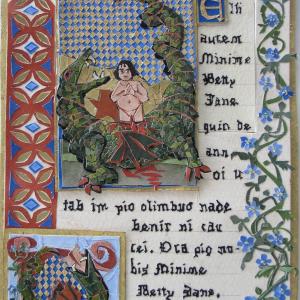 Eli
autem
Minime
Betty
Jane.
quin de
ann
oi u
tab im pio olimbuo nade
benir ni cau
cei. Ora pio no
bis Minime
Betty Jane.